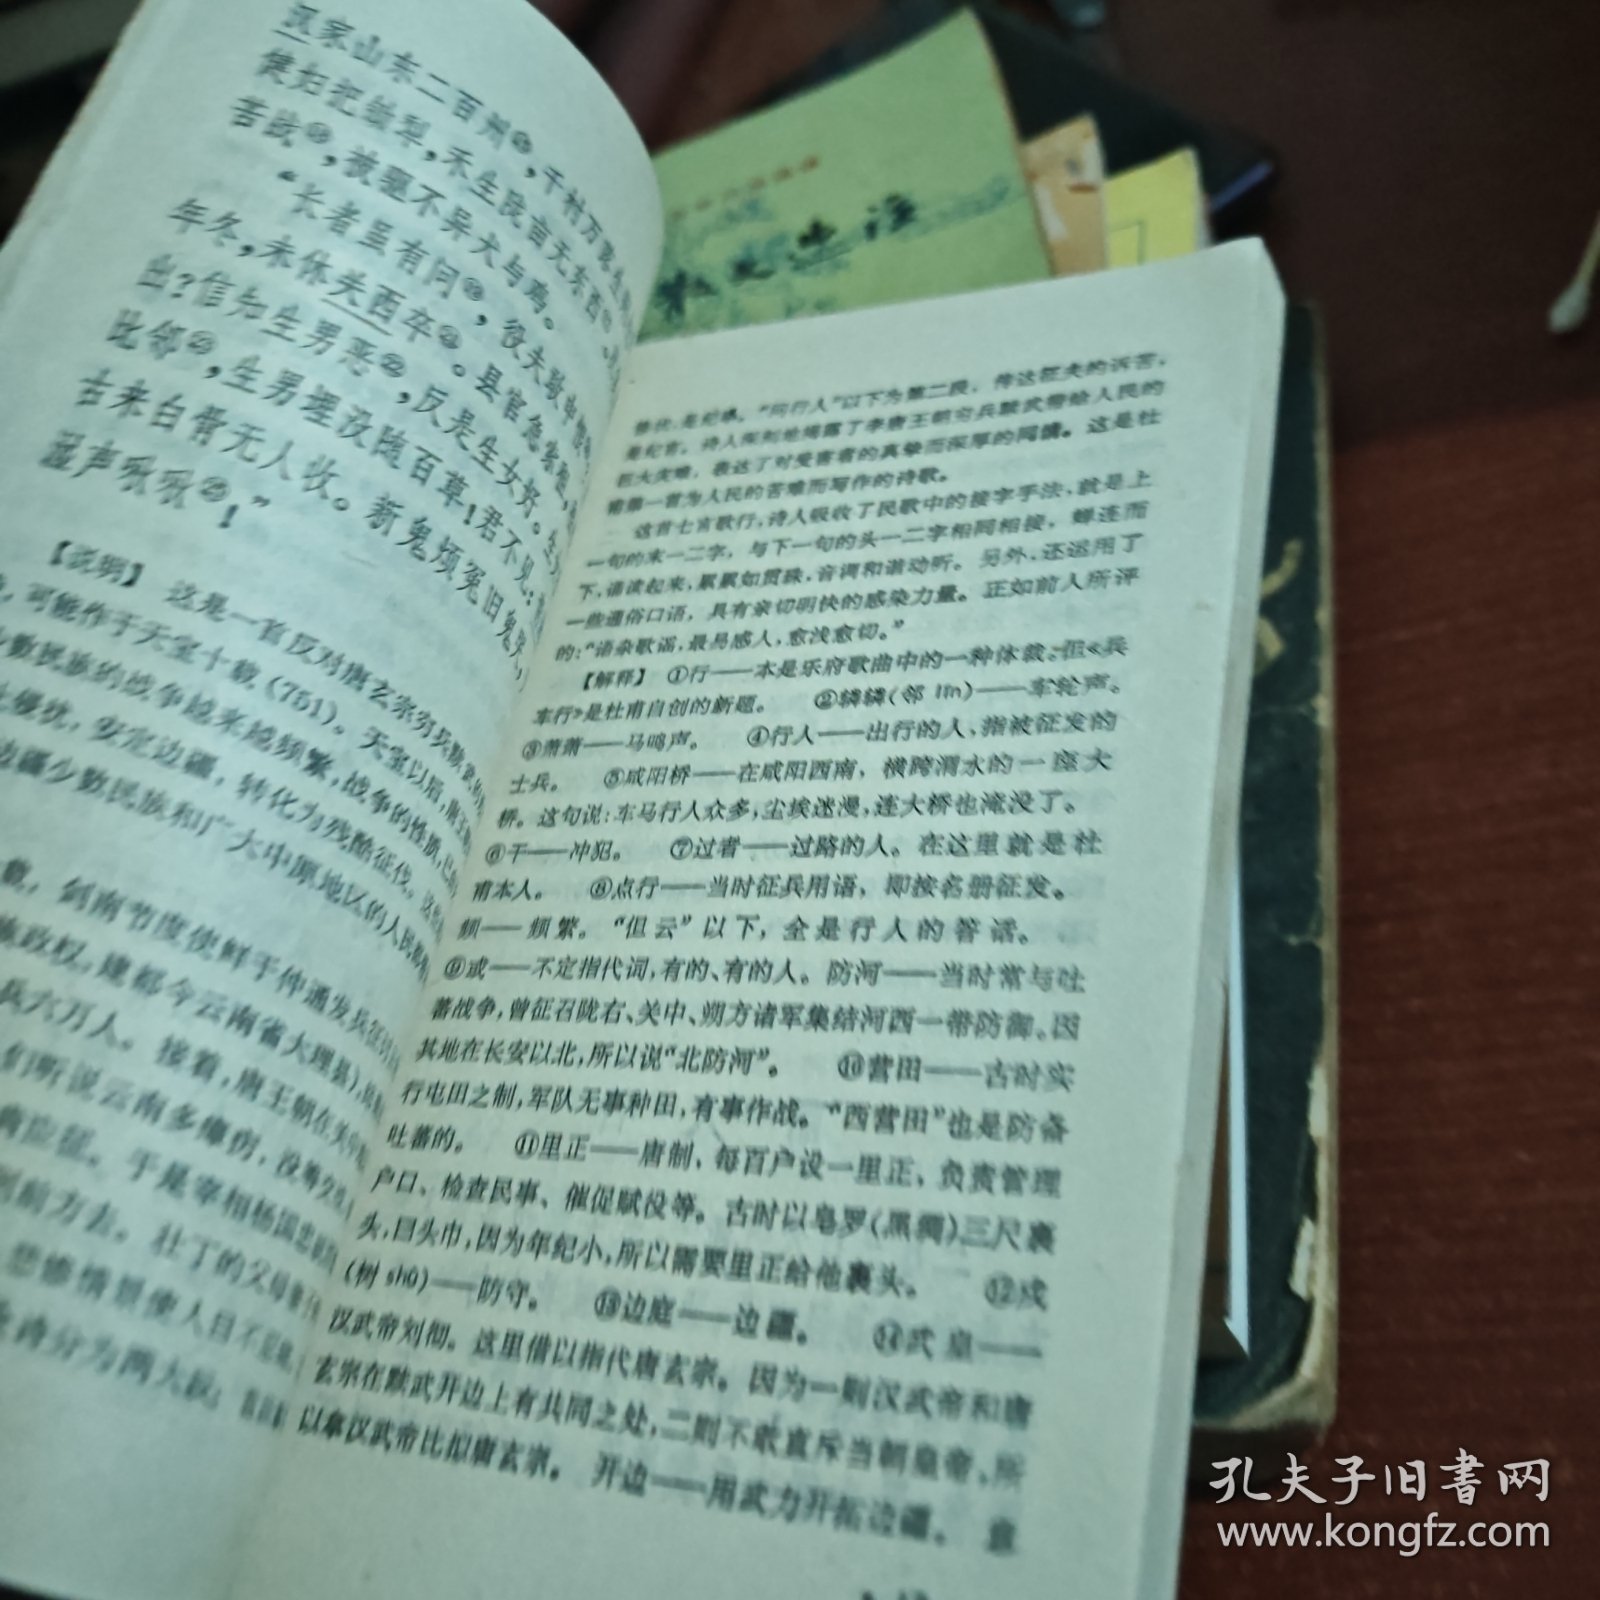 汉家山东二百州⑮，千村万落生
健妇把锄犁，禾生陇亩无东西
苦战⑱，被驱不异犬与鸡。
“长者虽有问⑲，役夫敢申恨
年冬，未休关西卒㉑。县官急索租，
出？信知生男恶㉒，反是生女好。生
比邻㉓，生男埋没随百草！君不见：
古来白骨无人收。新鬼烦冤旧鬼哭，
湿声啾啾㉕！”
【说明】 这是一首反对唐玄宗穷兵黩武的
可能作于天宝十载（751）。天宝以后，
少数民族的战争越来越频繁，战争的性质，已
侵扰，安定边疆，转化为残酷征伐。这些
边疆少数民族和广大中原地区的人民
载，剑南节度使鲜于仲通发兵
族政权，建都今云南省大理县），
兵六万人。接着，唐王朝在关中
们听说云南多瘴疠，没等
应征。于是宰相杨国忠
到前方去。壮丁的父母
悲惨情景使人目不忍
诗分为两大段：
愁状，是纪事。“问行人”以下为第二段，传达征夫的诉苦，
是纪言。诗人深刻地揭露了李唐王朝穷兵黩武带给人民的
巨大灾难，表达了对受害者的真挚而深厚的同情。这是杜
甫第一首为人民的苦难而写作的诗歌。
这首七言歌行，诗人吸收了民歌中的接字手法，就是上
一句的末一二字，与下一句的头一二字相同相接，蝉连而
下，诵读起来，累累如贯珠，音调和谐动听。另外，还运用了
一些通俗口语，具有亲切明快的感染力量。正如前人所评
的：“语杂歌谣，最易感人，愈浅愈切。”
【解释】 ①行——本是乐府歌曲中的一种体裁。但《兵
车行》是杜甫自创的新题。 ②辚辚（邻 lín）——车轮声。
③萧萧——马鸣声。 ④行人——出行的人，指被征发的
士兵。 ⑤咸阳桥——在咸阳西南，横跨渭水的一座大
桥。这句说：车马行人众多，尘埃迷漫，连大桥也淹没了。
⑥干——冲犯。 ⑦过者——过路的人。在这里就是杜
甫本人。 ⑧点行——当时征兵用语，即按名册征发。
频——频繁。“但云”以下，全是行人的答话。
⑨或——不定指代词，有的、有的人。防河——当时常与吐
蕃战争，曾征召陇右、关中、朔方诸军集结河西一带防御。因
其地在长安以北，所以说“北防河”。 ⑩营田——古时实
行屯田之制，军队无事种田，有事作战。“西营田”也是防备
吐蕃的。 ⑪里正——唐制，每百户设一里正，负责管理
户口、检查民事、催促赋役等。古时以皂罗（黑绸）三尺裹
头，曰头巾，因为年纪小，所以需要里正给他裹头。 ⑫戍
（树 shù）——防守。 ⑬边庭——边疆。 ⑭武皇——
汉武帝刘彻。这里借以指代唐玄宗。因为一则汉武帝和唐
玄宗在黩武开边上有共同之处，二则不敢直斥当朝皇帝，所
以拿汉武帝比拟唐玄宗。 开边——用武力开拓边疆。 意
孔夫子旧书网
www.kongfz.com